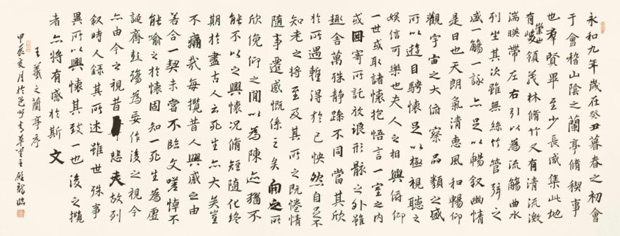 永和九年歲在癸丑暮春之初會
于會稽山陰之蘭亭脩禊事
也群賢畢至少長咸集此地
有崇山峻領茂林脩竹又有清流激
湍暎帶左右引以為流觴曲水
列坐其次雖無絲竹管弦之
盛一觴一詠亦足以暢叙幽情
是日也天朗氣清惠風和暢仰
觀宇宙之大俯察品類之盛
所以遊目騁懷足以極視聽之
娛信可樂也夫人之相與俯仰
一世或取諸懷抱悟言一室之內
或因寄所託放浪形骸之外雖
趣舍萬殊靜躁不同當其欣
於所遇暫得於己快然自足不
知老之將至及其所之既惓情
隨事遷感慨係之矣向之所
欣俛仰之間以為陳迹猶不
能不以之興懷況脩短隨化終
期於盡古人云死生亦大矣豈
不痛哉每攬昔人興感之由
若合一契未嘗不臨文嗟悼不
能喻之於懷固知一死生為虛
誕齊彭殤為妄作後之視今
亦由今之視昔悲夫故列
叙時人錄其所述雖世殊事
異所以興懷其致一也後之攬
者亦將有感於斯文
王羲之蘭亭序
甲辰